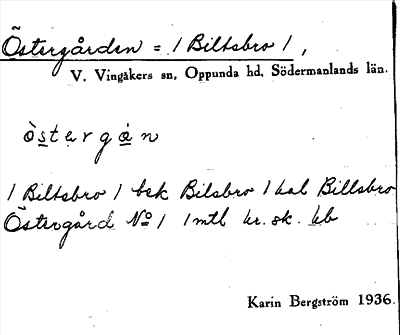 Östergården = / Biltsbro / ,
V. Vingåkers sn, Oppunda hd, Södermanlands län.
òstergȧn
/ Biltsbro / bsk Bilsbro / kal Billsbro
Östergård № 1 / mtl kr. sk. kb
Karin Bergström 1936.